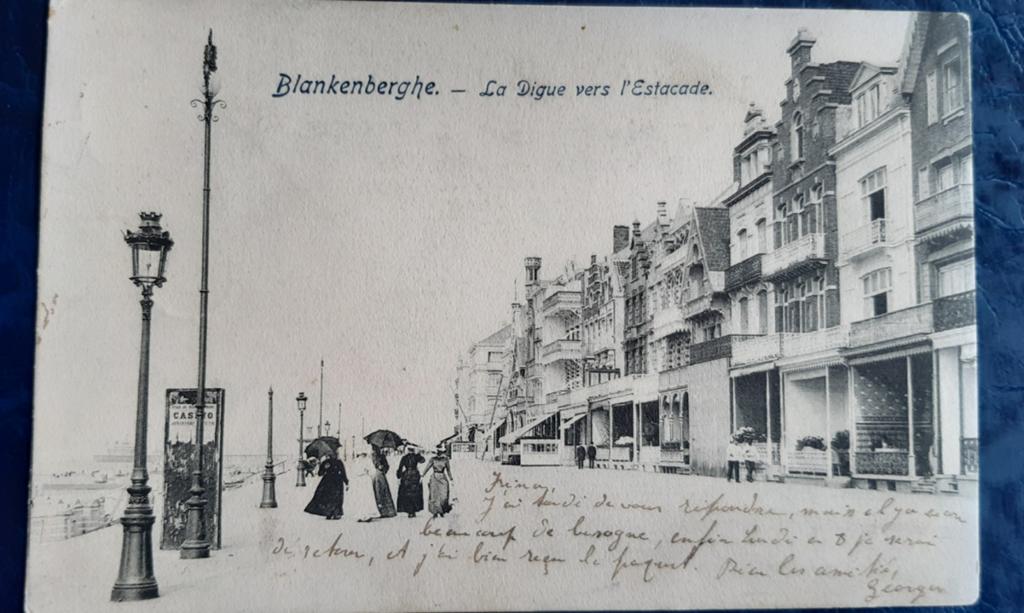 Blankenberghe. — La Digue vers l'Estacade.
CASINO
J'ai tardé de vous répondre, mais il y a eu
beaucoup de besogne, enfin Lundi en 8 je serai
de retour, et j'ai bien reçu le paquet. Bien les amitiés,
Georges